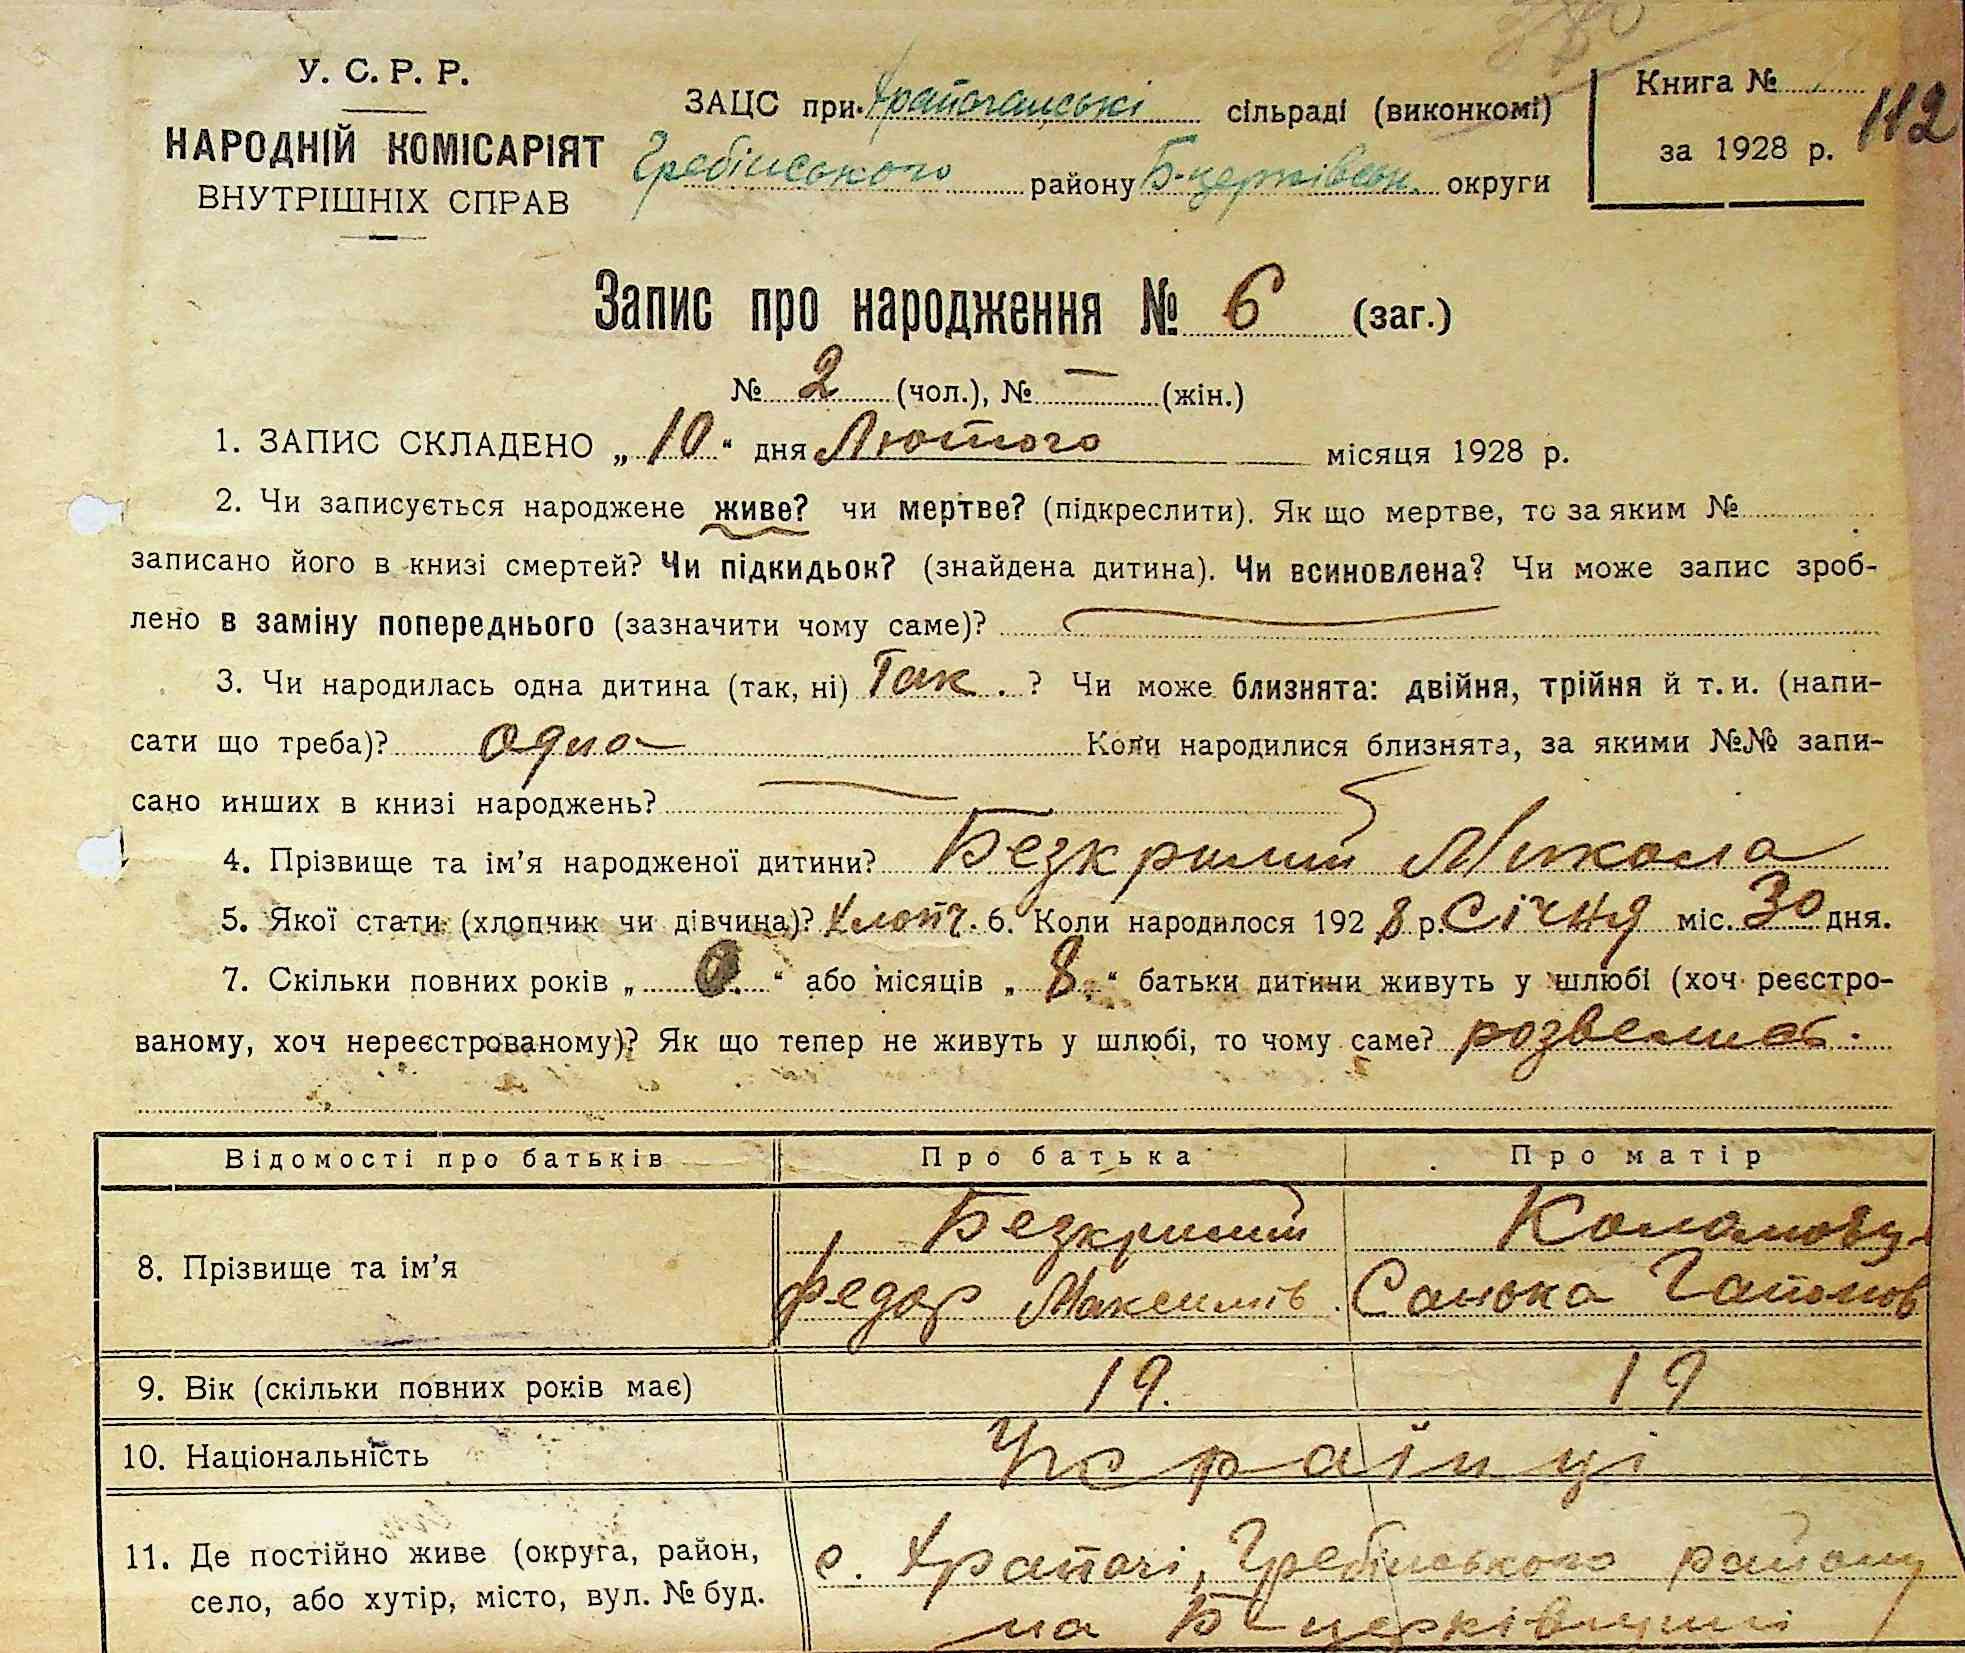 У. С. Р. Р.
НАРОДНІЙ КОМІСАРІЯТ
ВНУТРІШНІХ СПРАВ
ЗАЦС при Храпачанській сільраді (виконкомі)
Гребінського району Б-церківськ. округи
Книга №
за 1928 р.
112
Запис про народження № 6 (заг.)
№ 2 (чол.), № — (жін.)
1. ЗАПИС СКЛАДЕНО „10“ дня Лютого місяця 1928 р.
2. Чи записується народжене живе? чи мертве? (підкреслити). Як що мертве, то за яким №
записано його в книзі смертей? Чи підкидьок? (знайдена дитина). Чи всиновлена? Чи може запис зроб-
лено в заміну попереднього (зазначити чому саме)?
3. Чи народилась одна дитина (так, ні) Так. ? Чи може близнята: двійня, трійня й т. и. (напи-
сати що треба)? одна Коли народилися близнята, за якими №№ запи-
сано инших в книзі народжень?
4. Прізвище та ім'я народженої дитини? Безкрилий Микола
5. Якої стати (хлопчик чи дівчина)? Хлопч. 6. Коли народилося 1928 р. Січня міс. 30 дня.
7. Скільки повних років „0.“ або місяців „8.“ батьки дитини живуть у шлюбі (хоч реєстро-
ваному, хоч нереєстрованому)? Як що тепер не живуть у шлюбі, то чому саме? розвелись.
Відомості про батьків Про батька Про матір
8. Прізвище та ім'я
Безкрилий
Федор Максимів.
Санька Гапонов
9. Вік (скільки повних років має) 19. 19
10. Національність Українці
11. Де постійно живе (округа, район,
село, або хутір, місто, вул. № буд.
с. Храпачі, Гребінського району
на Б-церківщині